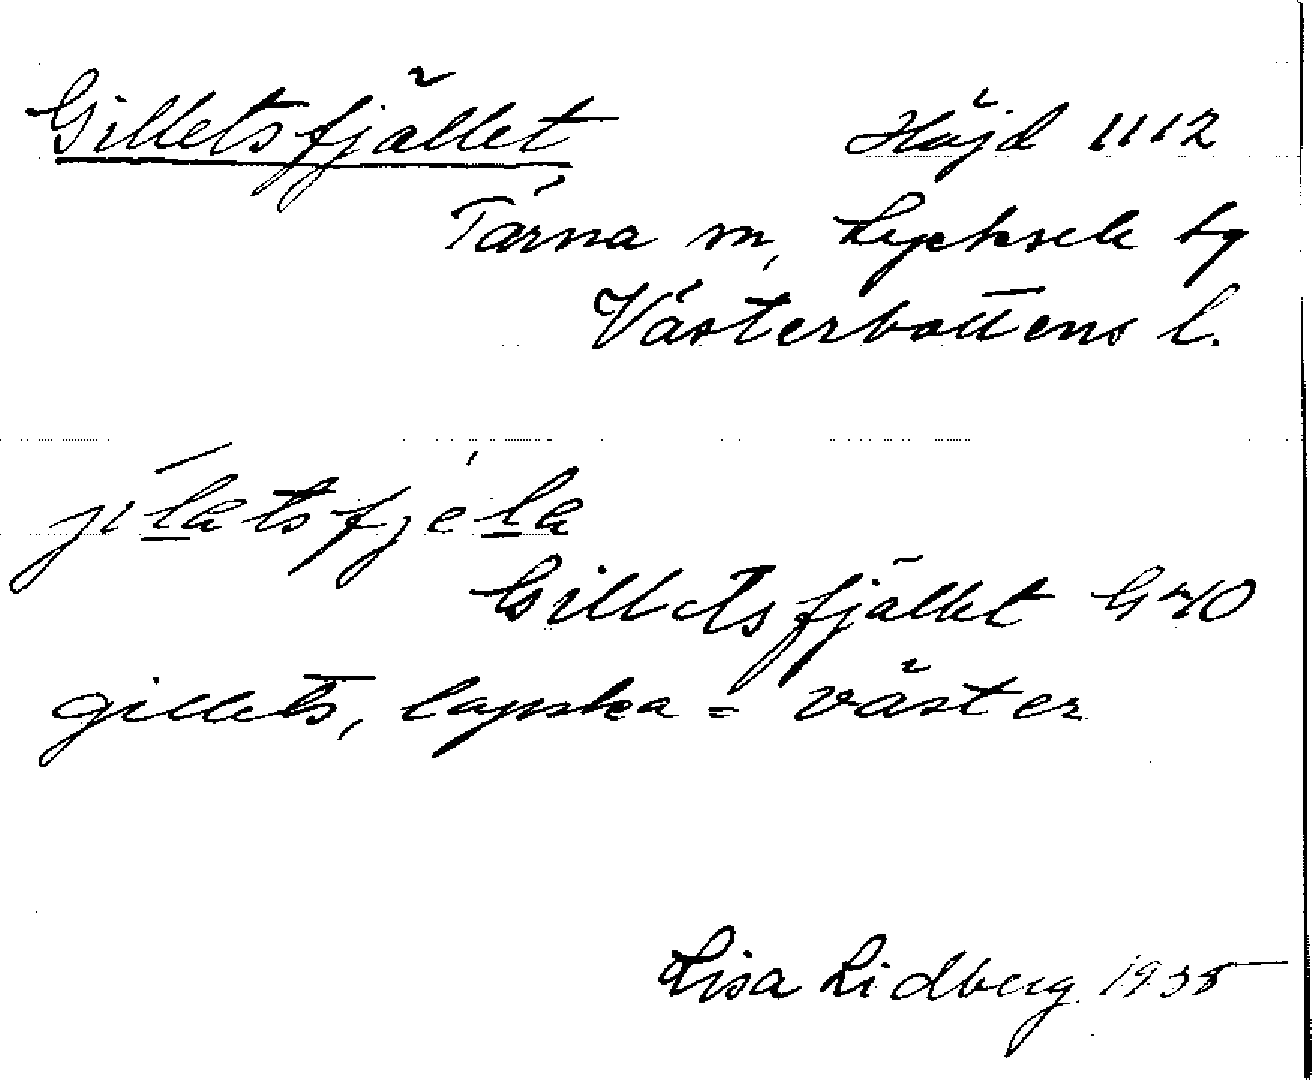 Gilletsfjället Höjd 1112
Tärna m, Lycksele tg
Västerbottens l.
jílatsfjéla
Gilletsfjället G40
gillets, lapska = väster
Lisa Lidberg 1935